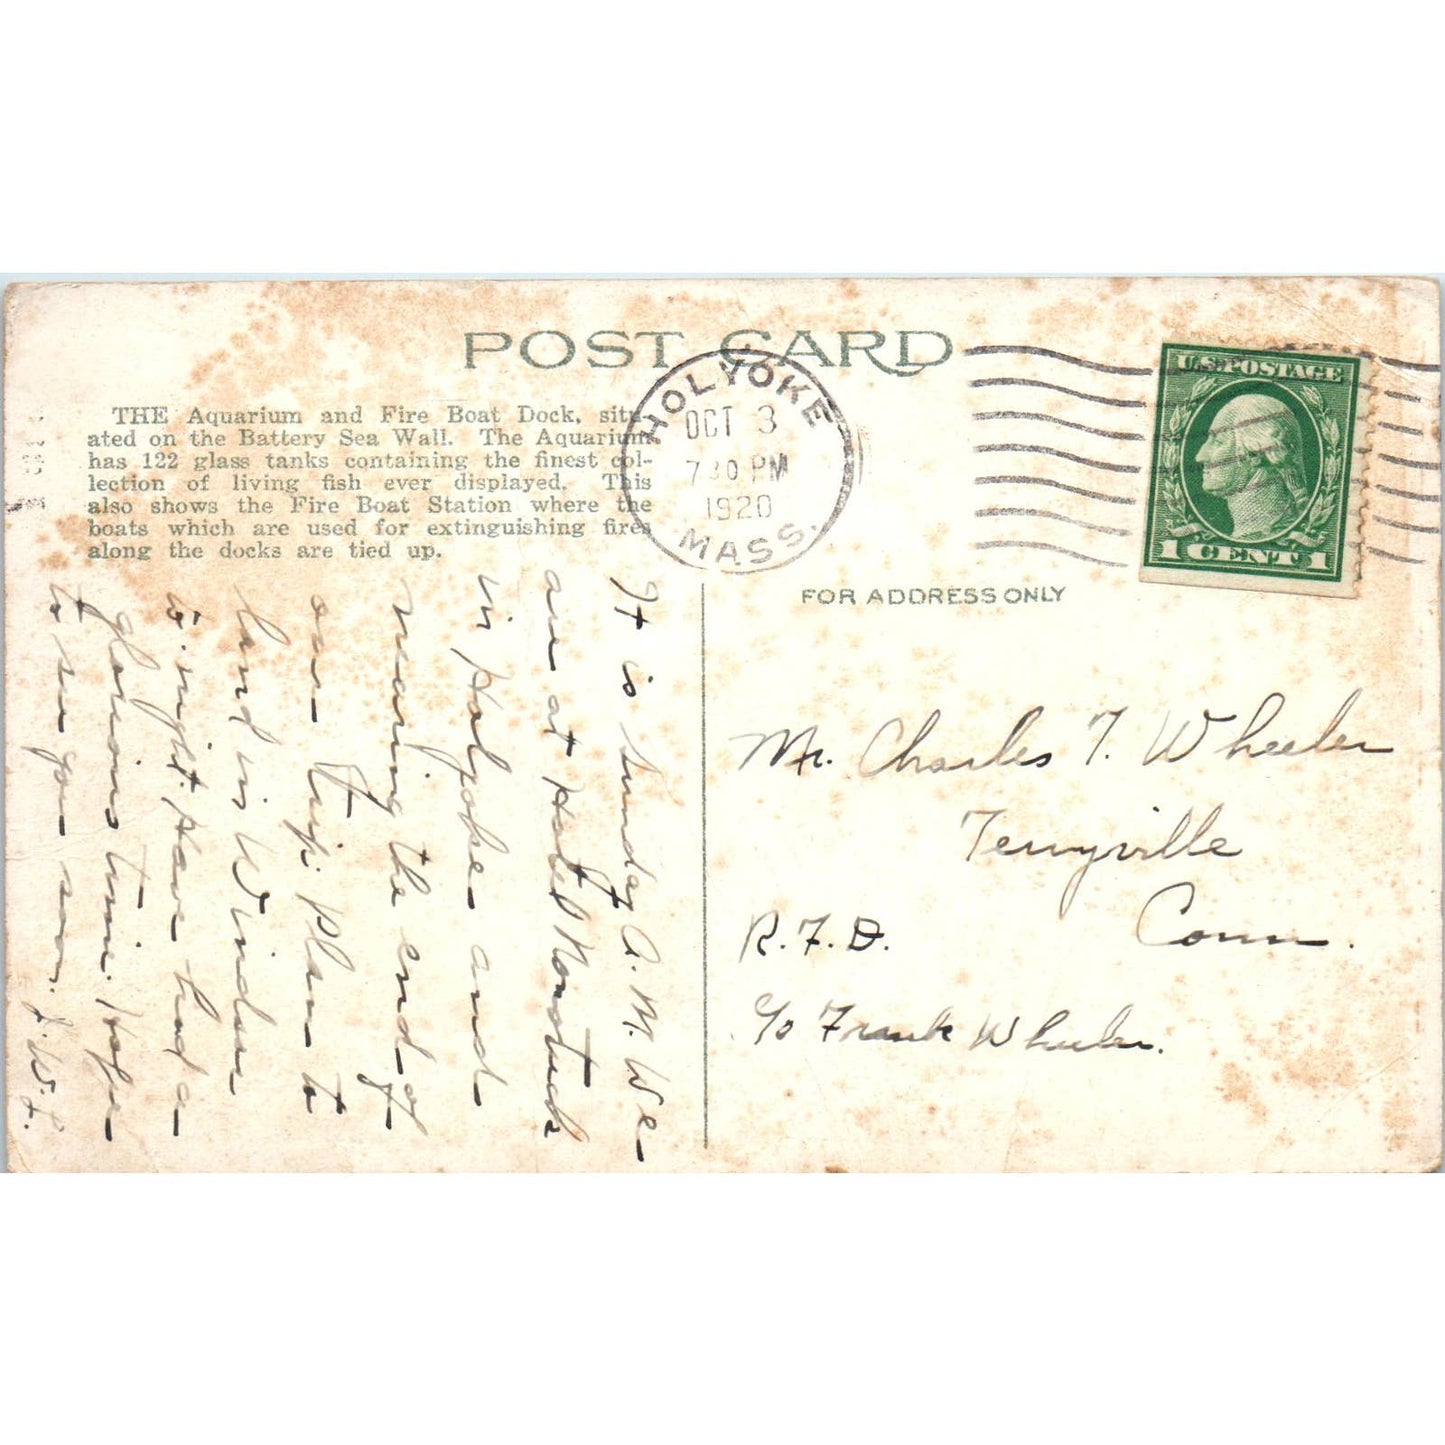 POST CARD
THE Aquarium and Fire Boat Dock, situ-
ated on the Battery Sea Wall. The Aquarium
has 122 glass tanks containing the finest col-
lection of living fish ever displayed. This
also shows the Fire Boat Station where the
boats which are used for extinguishing fires
along the docks are tied up.
HOLYOKE
OCT 3
7 30 PM
1920
MASS.
U.S. POSTAGE
1 CENT 1
FOR ADDRESS ONLY
It is Sunday A.M. We
are at Hotel Nonotuck
in Holyoke and
nearing the end of
our trip. Plan to
land in Windsor
to-night. Have had a
glorious time. Hope
to see you soon. J.W.F.
Mr. Charles T. Wheeler
Terryville
Conn.
R.F.D.
c/o Frank Wheeler.